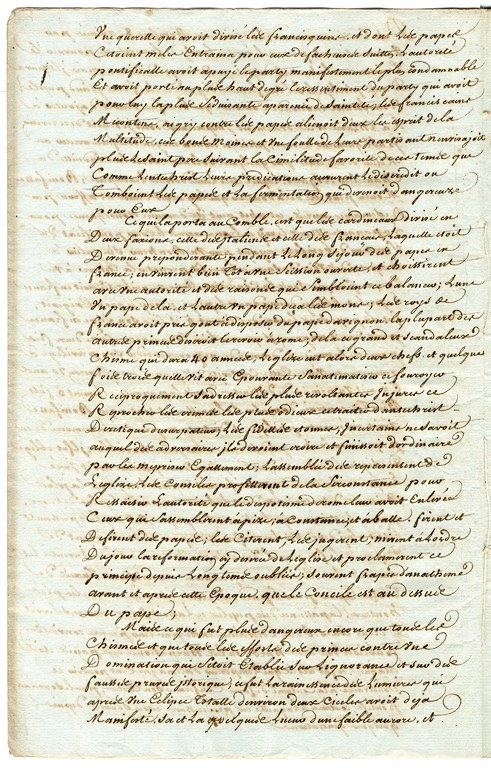 Une querelle qui avoit divisé les francisquins, et dont les papes
s'étoint melés Entraina pour eux de facheuses suittes, L'autorité
pontificalle avoit apuyé le party manifestement le plus condamnable
Et avoit porté au plus haut degré le ressentiment du party qui avoit
pour luy la plus séduisante aparence de Sainteté; les franciscains
Mecontens, aigry contre les papes alienoit d'eux les esprit de la
Multitude, ces bons Moines et une foulle de Leurs partisant
plus le Saint pere suivant la similitude favorite de ces tems que
Comme Lentechrist Leurs predications acrurent le discredit ou
Tomboint Les papes et La fermentation qui devenoit dangereuze
pour Eux
Ce qui la porta au Comble, c'est que les cardineaux divisé en
Deux faxions, celle des Italiens et celle des francais, Laquelle etoit
Devenue preponderante pendant le Long Sejour des papes en
france; en vinrent bien tot a une Scission ouverte et choisirent
avec une autorité et des raisons qui sembloint ce balancer, L'une
Un pape de la, et L'autre un pape deça les mons; Les roys de
france avoit pris gout a disposer du pape d'avignon, la plupart des
autres princes desiroit le revoir a rome; de la ce grand et Scandaleux
Chisme qui dura 40 années, L'eglise eut alors deux chefs et quelque
fois trois quelle vit avec Epouvante sanatimatiser ce
Reciproquement sadresser les plus revoltantes Injures ce
Reprocher les crimes les plus odieux ce traiter dantechrist
Deretique dusurpateur, Les fidelles etonnés, Incertains ne savoit
auquil des adversaires ils devoient croire et finissoit dordinaire
par les mepriser Egallement; L'assemblée des representens de
L'eglise, Les Conciles profitterent de la Circonstance pour
Ressaisir L'autorité que le despotisme de rome leur avoit Enlevée
Ceux qui sassemblerent a pize, a Constance, et a balle, firent et
Defirent des papes; les Citerent, Les jugerent; mirent a Lordre
Du jour la reformation de L'eglise et proclamerent ce
principe depuis Longtems oubliée, Souvent frapée danatheme
avant et aprés cette Epoque, que le Concile est au dessus
Du pape;
Mais ce qui fut plus dangereux encore que tous les
Chismes et que tous les efforts des princes contre une
Domination qui sétoit Etablie sur Lignorance et sur des
fausses preuves istorique, ce fut La renessence des Lumieres qui
aprés une Eclipce Totalle denviron deux Ciecles avoit deja
Manifesté, sa et La quelques Lueurs d'une faible aurore, et